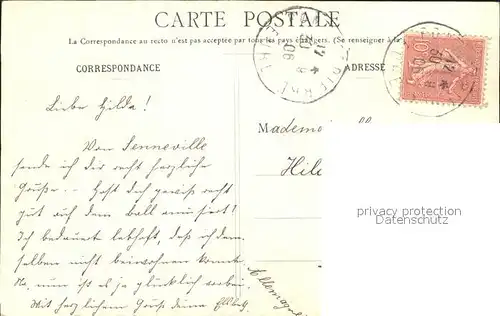 CARTE POSTALE
La Correspondance au recto n'est pas acceptée par tous les pays étrangers. (Se renseigner à la
CORRESPONDANCE
ADRESSE
Liebe Hilda!
Mademoi
Von Senneville
Hil
sende ich dir recht herzliche
Grüße. - Hast dich gewiss recht
gut auf dem Ball amüsiert!
Ich bedaure lebhaft, dass ich dem
selben nicht beiwohnen konnte
Na, nun ist es ja glücklich vorbei.
Mit herzlichem Gruß deine
Allemagne
privacy protection
Datenschutz